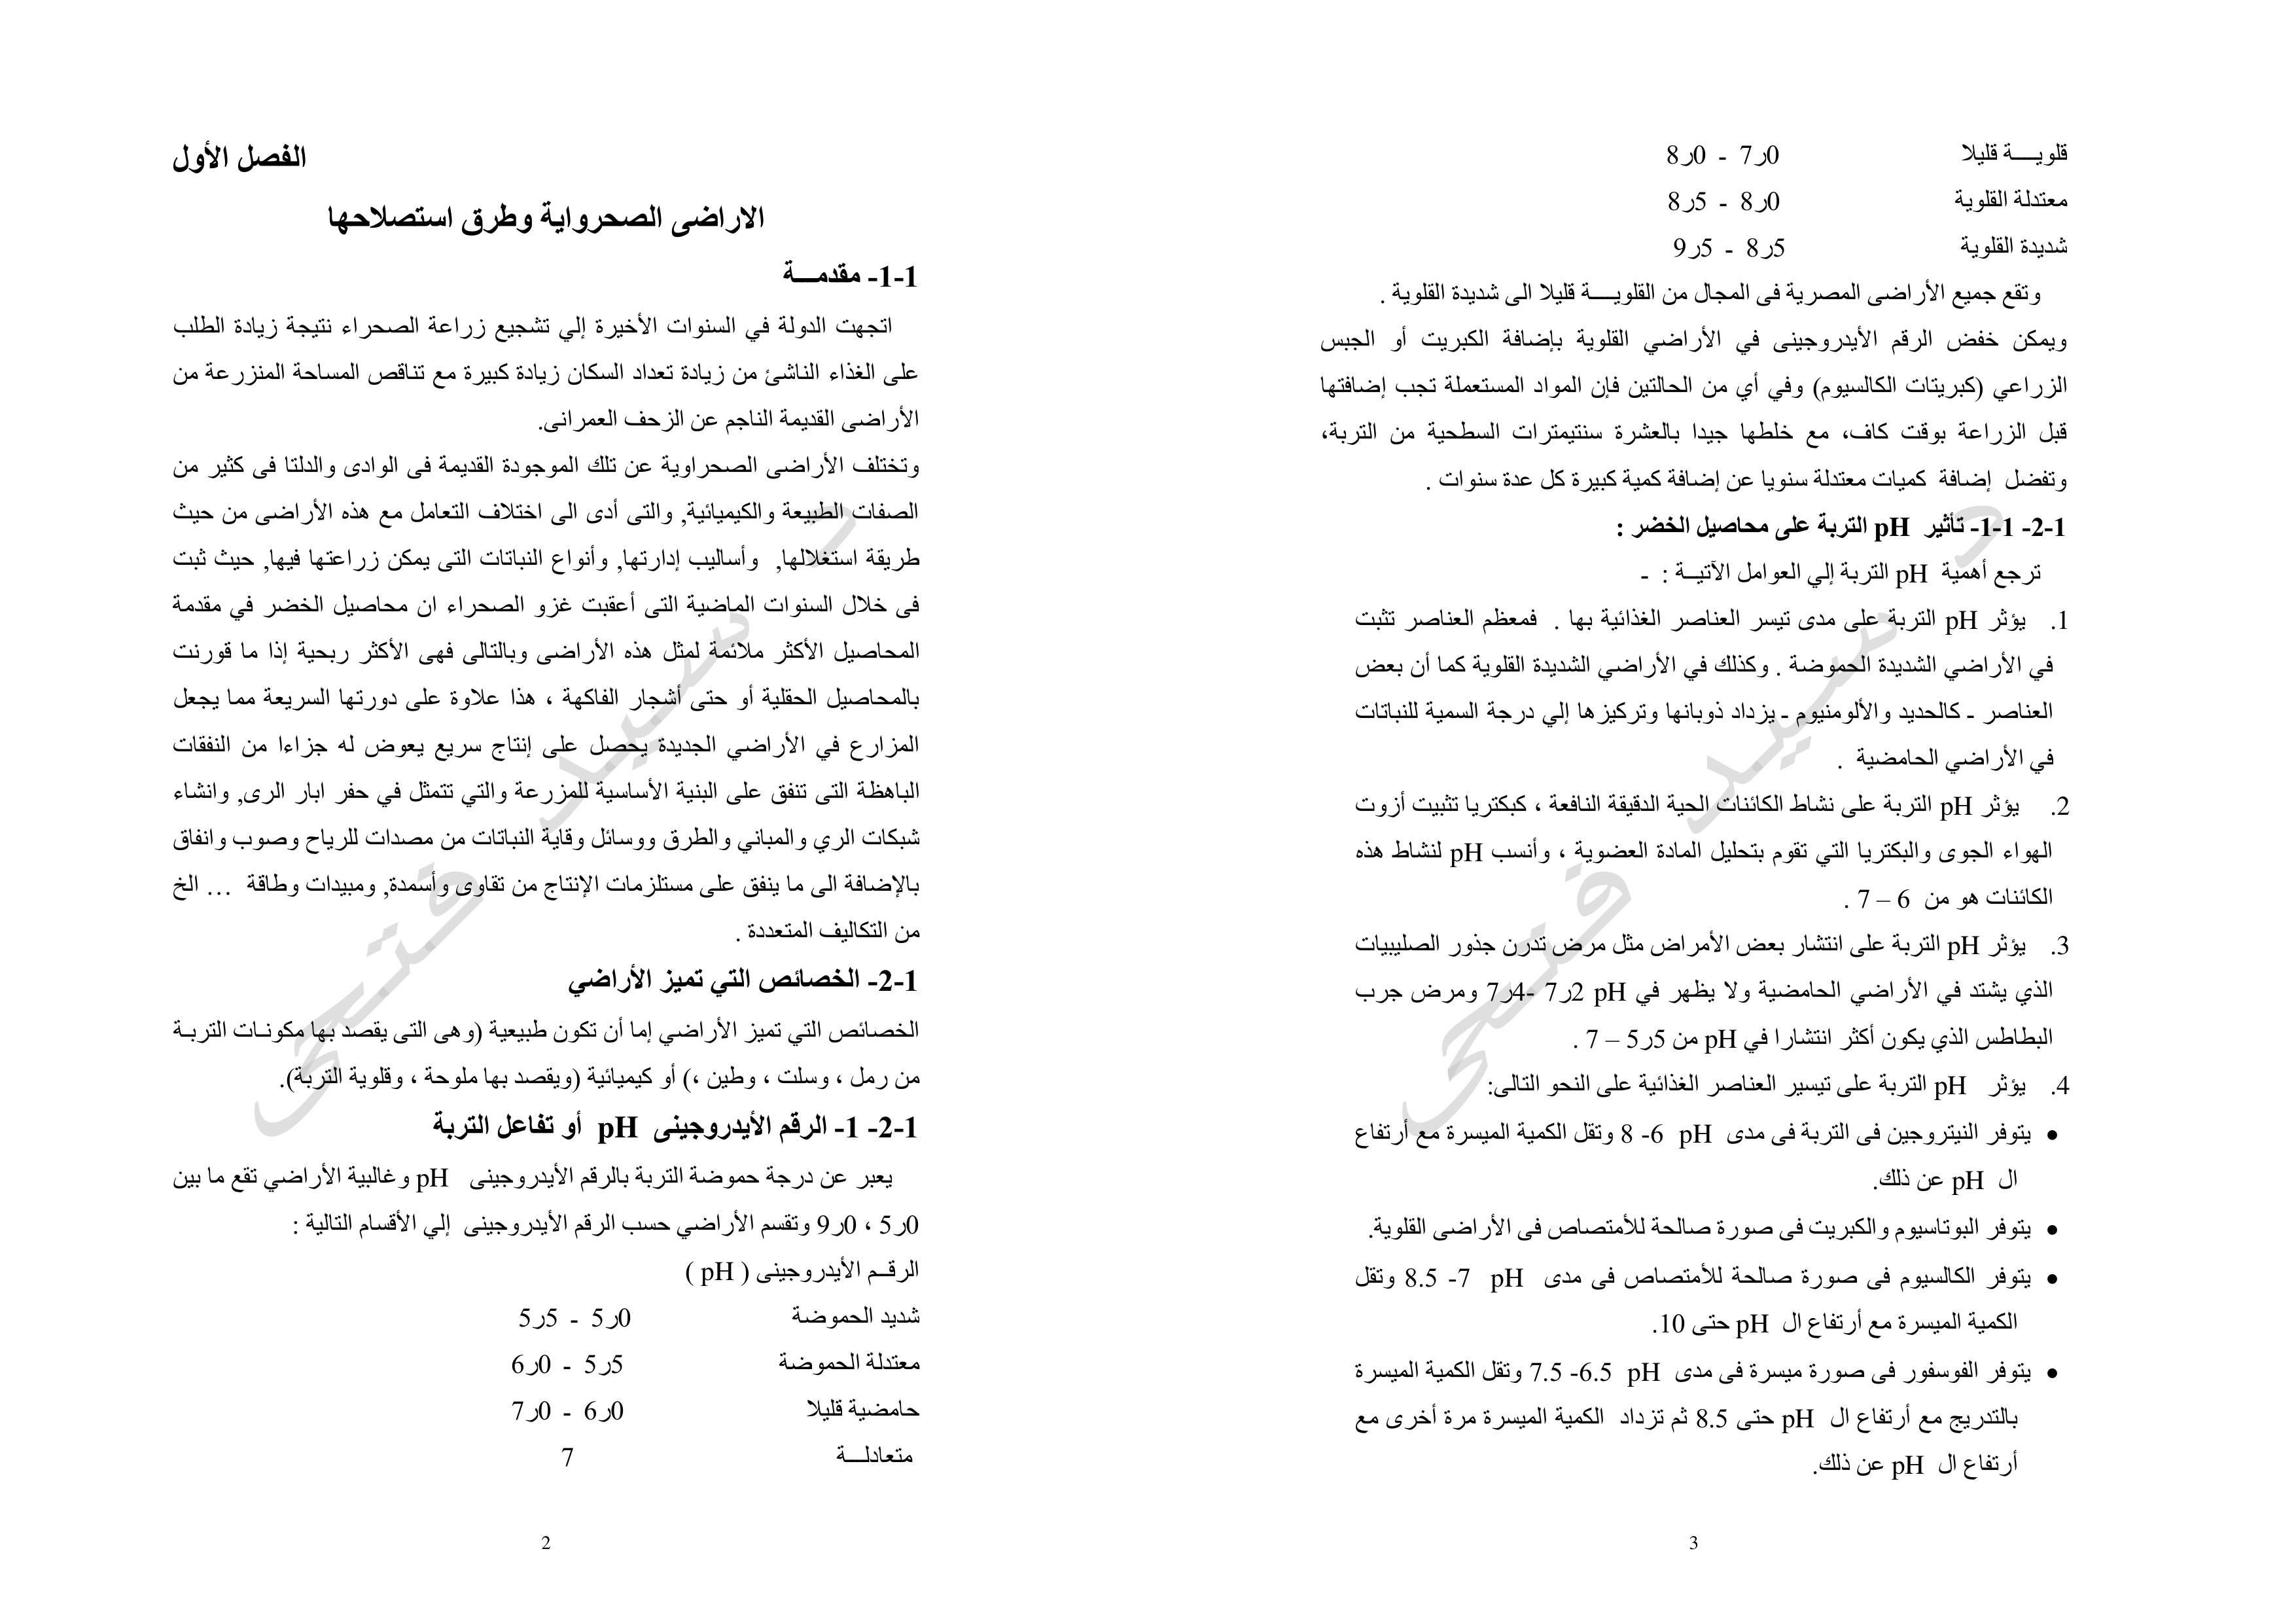 الفصل الأول
الاراضى الصحرواية وطرق استصلاحها
1-1- مقدمـــة
اتجهت الدولة في السنوات الأخيرة إلي تشجيع زراعة الصحراء نتيجة زيادة الطلب
على الغذاء الناشئ من زيادة تعداد السكان زيادة كبيرة مع تناقص المساحة المنزرعة من
الأراضى القديمة الناجم عن الزحف العمرانى.
وتختلف الأراضى الصحراوية عن تلك الموجودة القديمة فى الوادى والدلتا فى كثير من
الصفات الطبيعة والكيميائية, والتى أدى الى اختلاف التعامل مع هذه الأراضى من حيث
طريقة استغلالها, وأساليب إدارتها, وأنواع النباتات التى يمكن زراعتها فيها, حيث ثبت
فى خلال السنوات الماضية التى أعقبت غزو الصحراء ان محاصيل الخضر في مقدمة
المحاصيل الأكثر ملائمة لمثل هذه الأراضى وبالتالى فهى الأكثر ربحية إذا ما قورنت
بالمحاصيل الحقلية أو حتى أشجار الفاكهة ، هذا علاوة على دورتها السريعة مما يجعل
المزارع في الأراضي الجديدة يحصل على إنتاج سريع يعوض له جزاءا من النفقات
الباهظة التى تنفق على البنية الأساسية للمزرعة والتي تتمثل في حفر ابار الرى, وانشاء
شبكات الري والمباني والطرق ووسائل وقاية النباتات من مصدات للرياح وصوب وانفاق
بالإضافة الى ما ينفق على مستلزمات الإنتاج من تقاوى وأسمدة, ومبيدات وطاقة ... الخ
من التكاليف المتعددة .
1-2- الخصائص التي تميز الأراضي
الخصائص التي تميز الأراضي إما أن تكون طبيعية (وهى التى يقصد بها مكونـات التربـة
من رمل ، وسلت ، وطين ،) أو كيميائية (ويقصد بها ملوحة ، وقلوية التربة).
1-2- 1- الرقم الأيدروجينى pH أو تفاعل التربة
يعبر عن درجة حموضة التربة بالرقم الأيدروجينى pH وغالبية الأراضي تقع ما بين
0ر5 ، 0ر9 وتقسم الأراضي حسب الرقم الأيدروجينى إلي الأقسام التالية :
الرقــم الأيدروجينى ( pH )
شديد الحموضة 0ر5 - 5ر5
معتدلة الحموضة 5ر5 - 0ر6
حامضية قليلا 0ر6 - 0ر7
متعادلـــة 7
2
قلويــــة قليلا 0ر7 - 0ر8
معتدلة القلوية 0ر8 - 5ر8
شديدة القلوية 5ر8 - 5ر9
وتقع جميع الأراضى المصرية فى المجال من القلويــــة قليلا الى شديدة القلوية .
ويمكن خفض الرقم الأيدروجينى في الأراضي القلوية بإضافة الكبريت أو الجبس
الزراعي (كبريتات الكالسيوم) وفي أي من الحالتين فإن المواد المستعملة تجب إضافتها
قبل الزراعة بوقت كاف، مع خلطها جيدا بالعشرة سنتيمترات السطحية من التربة،
وتفضل إضافة كميات معتدلة سنويا عن إضافة كمية كبيرة كل عدة سنوات .
1-2- 1-1- تأثير pH التربة على محاصيل الخضر :
ترجع أهمية pH التربة إلي العوامل الآتيــة : -
1. يؤثر pH التربة على مدى تيسر العناصر الغذائية بها . فمعظم العناصر تثبت
في الأراضي الشديدة الحموضة . وكذلك في الأراضي الشديدة القلوية كما أن بعض
العناصر - كالحديد والألومنيوم - يزداد ذوبانها وتركيزها إلي درجة السمية للنباتات
في الأراضي الحامضية .
2. يؤثر pH التربة على نشاط الكائنات الحية الدقيقة النافعة ، كبكتريا تثبيت أزوت
الهواء الجوى والبكتريا التي تقوم بتحليل المادة العضوية ، وأنسب pH لنشاط هذه
الكائنات هو من 6 – 7 .
3. يؤثر pH التربة على انتشار بعض الأمراض مثل مرض تدرن جذور الصليبيات
الذي يشتد في الأراضي الحامضية ولا يظهر في pH 2ر7 -4ر7 ومرض جرب
البطاطس الذي يكون أكثر انتشارا في pH من 5ر5 – 7 .
4. يؤثر pH التربة على تيسير العناصر الغذائية على النحو التالى:
• يتوفر النيتروجين فى التربة فى مدى pH 6- 8 وتقل الكمية الميسرة مع أرتفاع
ال pH عن ذلك.
• يتوفر البوتاسيوم والكبريت فى صورة صالحة للأمتصاص فى الأراضى القلوية.
• يتوفر الكالسيوم فى صورة صالحة للأمتصاص فى مدى pH 7- 8.5 وتقل
الكمية الميسرة مع أرتفاع ال pH حتى 10.
• يتوفر الفوسفور فى صورة ميسرة فى مدى pH 6.5- 7.5 وتقل الكمية الميسرة
بالتدريج مع أرتفاع ال pH حتى 8.5 ثم تزداد الكمية الميسرة مرة أخرى مع
أرتفاع ال pH عن ذلك.
3
د سيد فتحى
د سيد فتحى